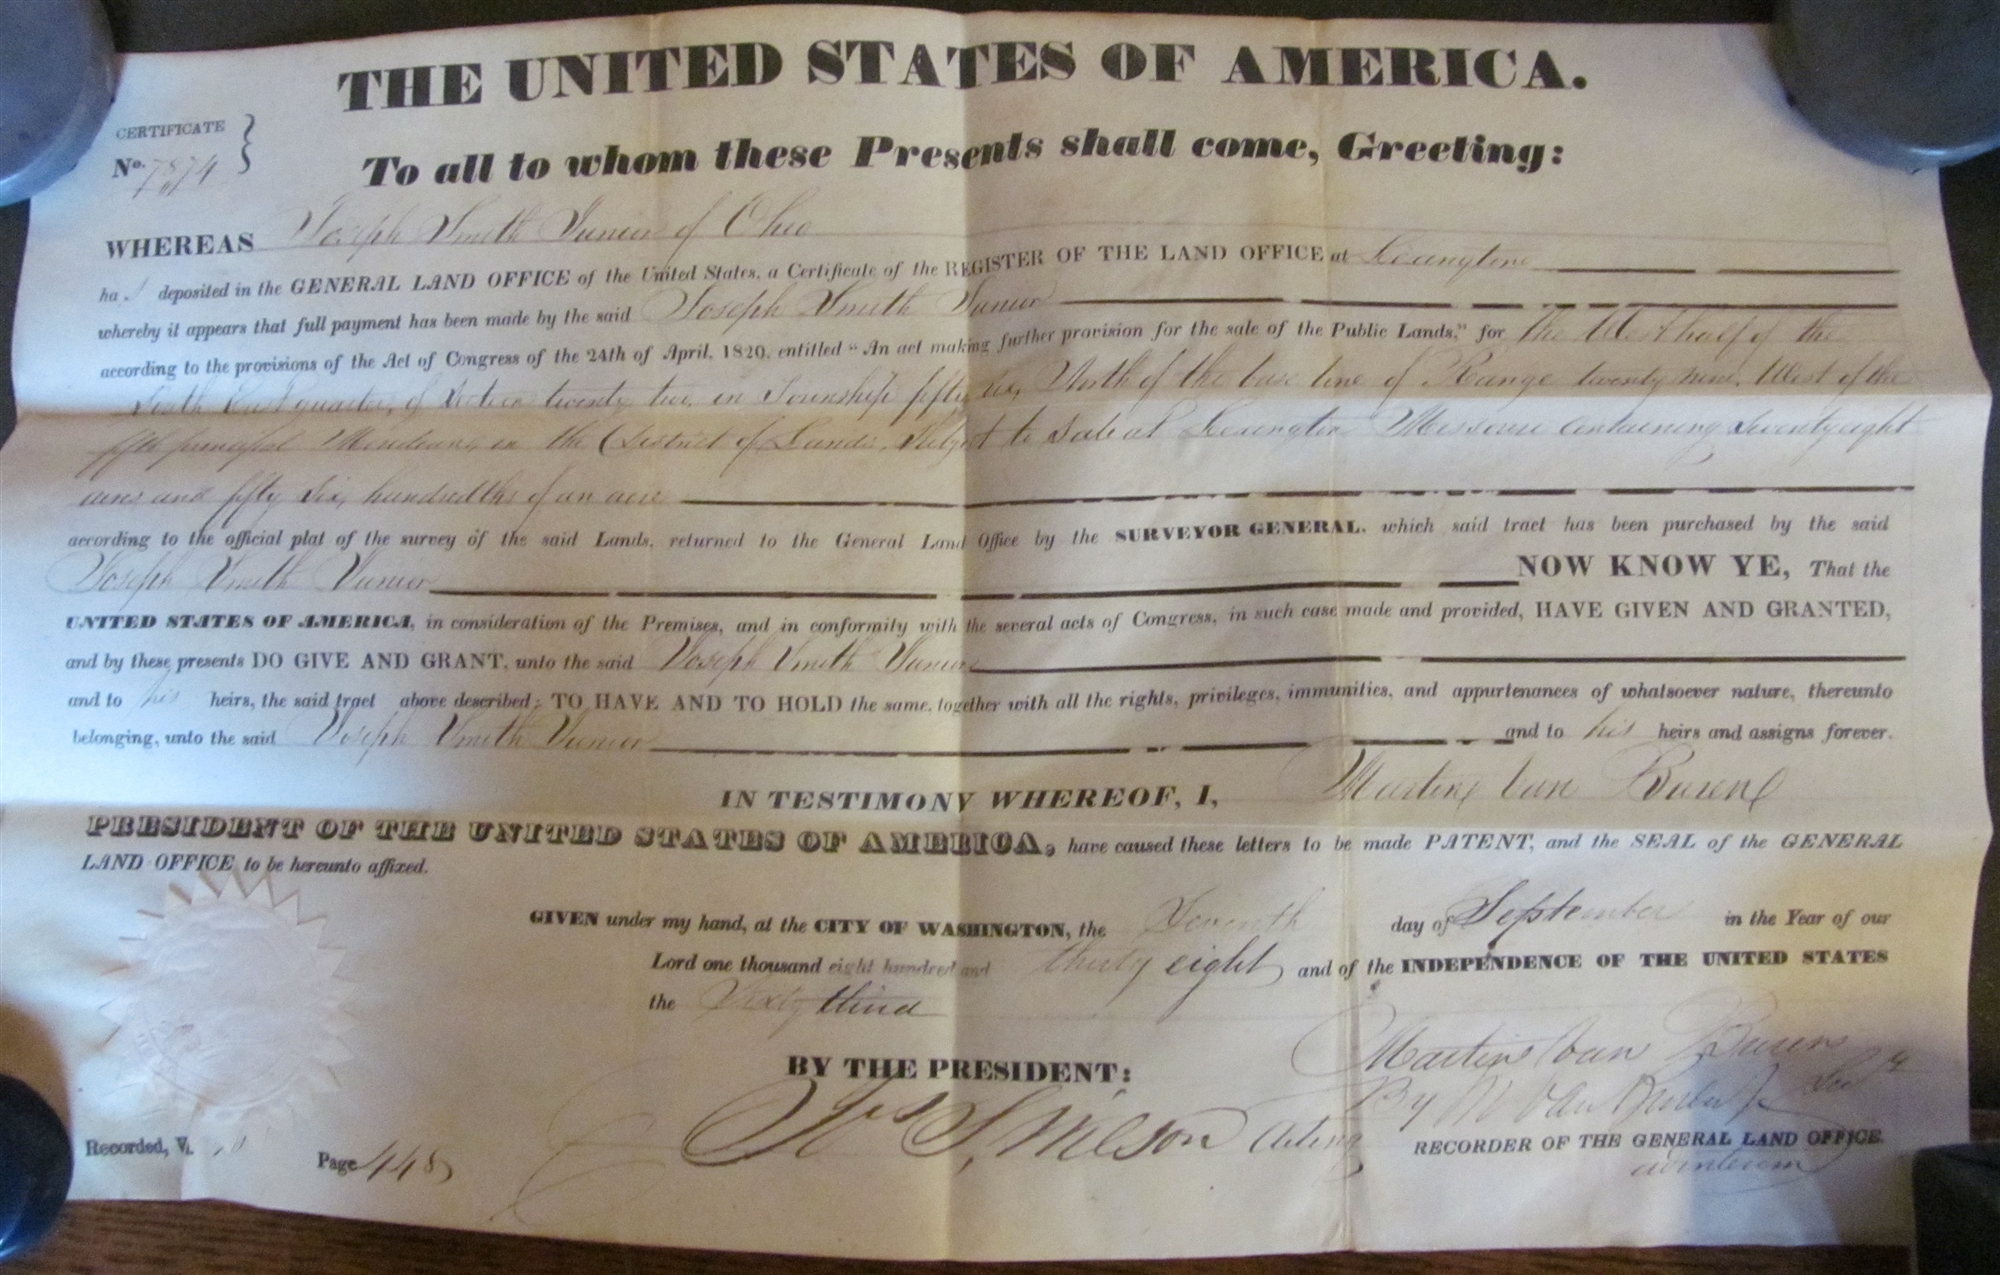 THE UNITED STATES OF AMERICA.
CERTIFICATE
No. 7874
To all to whom these Presents shall come, Greeting:
WHEREAS Joseph Smith Junior of Ohio
ha s deposited in the GENERAL LAND OFFICE of the United States, a Certificate of the REGISTER OF THE LAND OFFICE at Lexington
whereby it appears that full payment has been made by the said Joseph Smith Junior
according to the provisions of the Act of Congress of the 24th of April, 1820, entitled "An act making further provision for the sale of the Public Lands," for the West half of the
East quarter, of Section twenty two, in Township fifty six, North of the base line of Range twenty nine, West of the
fifth principal Meridian, in the District of Lands, Subject to Sale at Lexington Missouri containing Seventy eight
acres and fifty six, hundredths of an acre
according to the official plat of the survey of the said Lands, returned to the General Land Office by the SURVEYOR GENERAL, which said tract has been purchased by the said
Joseph Smith Junior NOW KNOW YE, That the
UNITED STATES OF AMERICA, in consideration of the Premises, and in conformity with the several acts of Congress, in such case made and provided, HAVE GIVEN AND GRANTED,
and by these presents DO GIVE AND GRANT, unto the said Joseph Smith Junior
and to his heirs, the said tract above described; TO HAVE AND TO HOLD the same, together with all the rights, privileges, immunities, and appurtenances of whatsoever nature, thereunto
belonging, unto the said Joseph Smith Junior and to his heirs and assigns forever.
IN TESTIMONY WHEREOF, I, Martin Van Buren
PRESIDENT OF THE UNITED STATES OF AMERICA, have caused these letters to be made PATENT, and the SEAL of the GENERAL
LAND OFFICE to be hereunto affixed.
GIVEN under my hand, at the CITY OF WASHINGTON, the Seventh day of September in the Year of our
Lord one thousand eight hundred and thirty eight and of the INDEPENDENCE OF THE UNITED STATES
the Sixty third
BY THE PRESIDENT: Martin Van Buren
By M Van Buren Jr Secy
Jos S. Wilson Acting RECORDER OF THE GENERAL LAND OFFICE.
ad interim
Recorded, Vol. Page 448